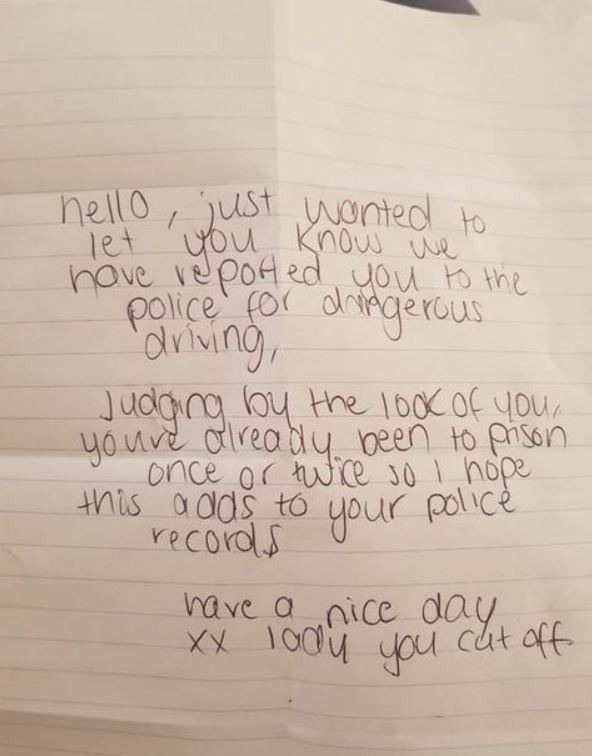 hello, just wanted to
let you know we
have reported you to the
police for dangerous
driving,
Judging by the look of you,
youve already been to prison
once or twice so I hope
this adds to your police
records
have a nice day
xx lady you cut off